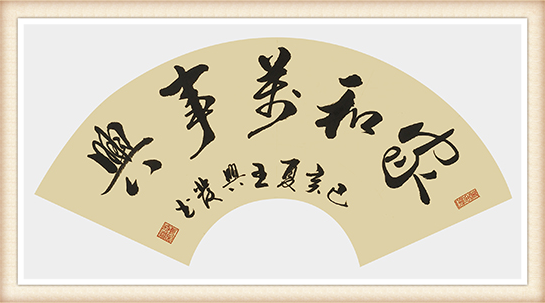 家和萬事興
己亥夏王興發书